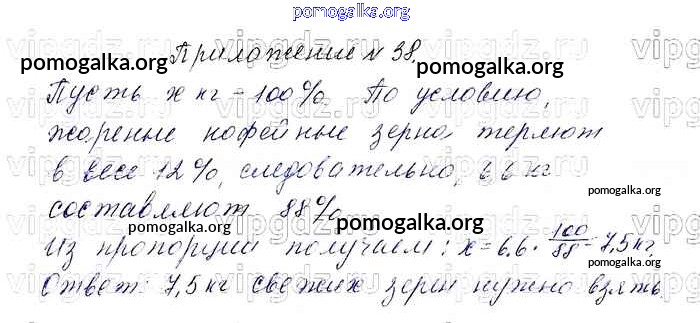 pomogalka.org
Приложение № 38.
pomogalka.org
pomogalka.org
Пусть x кг – 100%. По условию,
жареные кофейные зерна теряют
в весе 12%, следовательно, 6,6 кг
pomogalka.org
составляют 88%
Из пропорции получаем: x = 6,6 · 100/88 = 7,5 кг.
pomogalka.org
Ответ: 7,5 кг свежих зерен нужно взять.
pomogalka.org